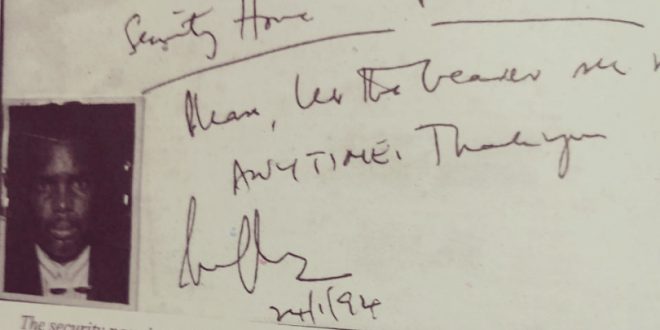 Security Home
Please, let the bearer see
ANYTIME. Thank you
24/1/94
The security